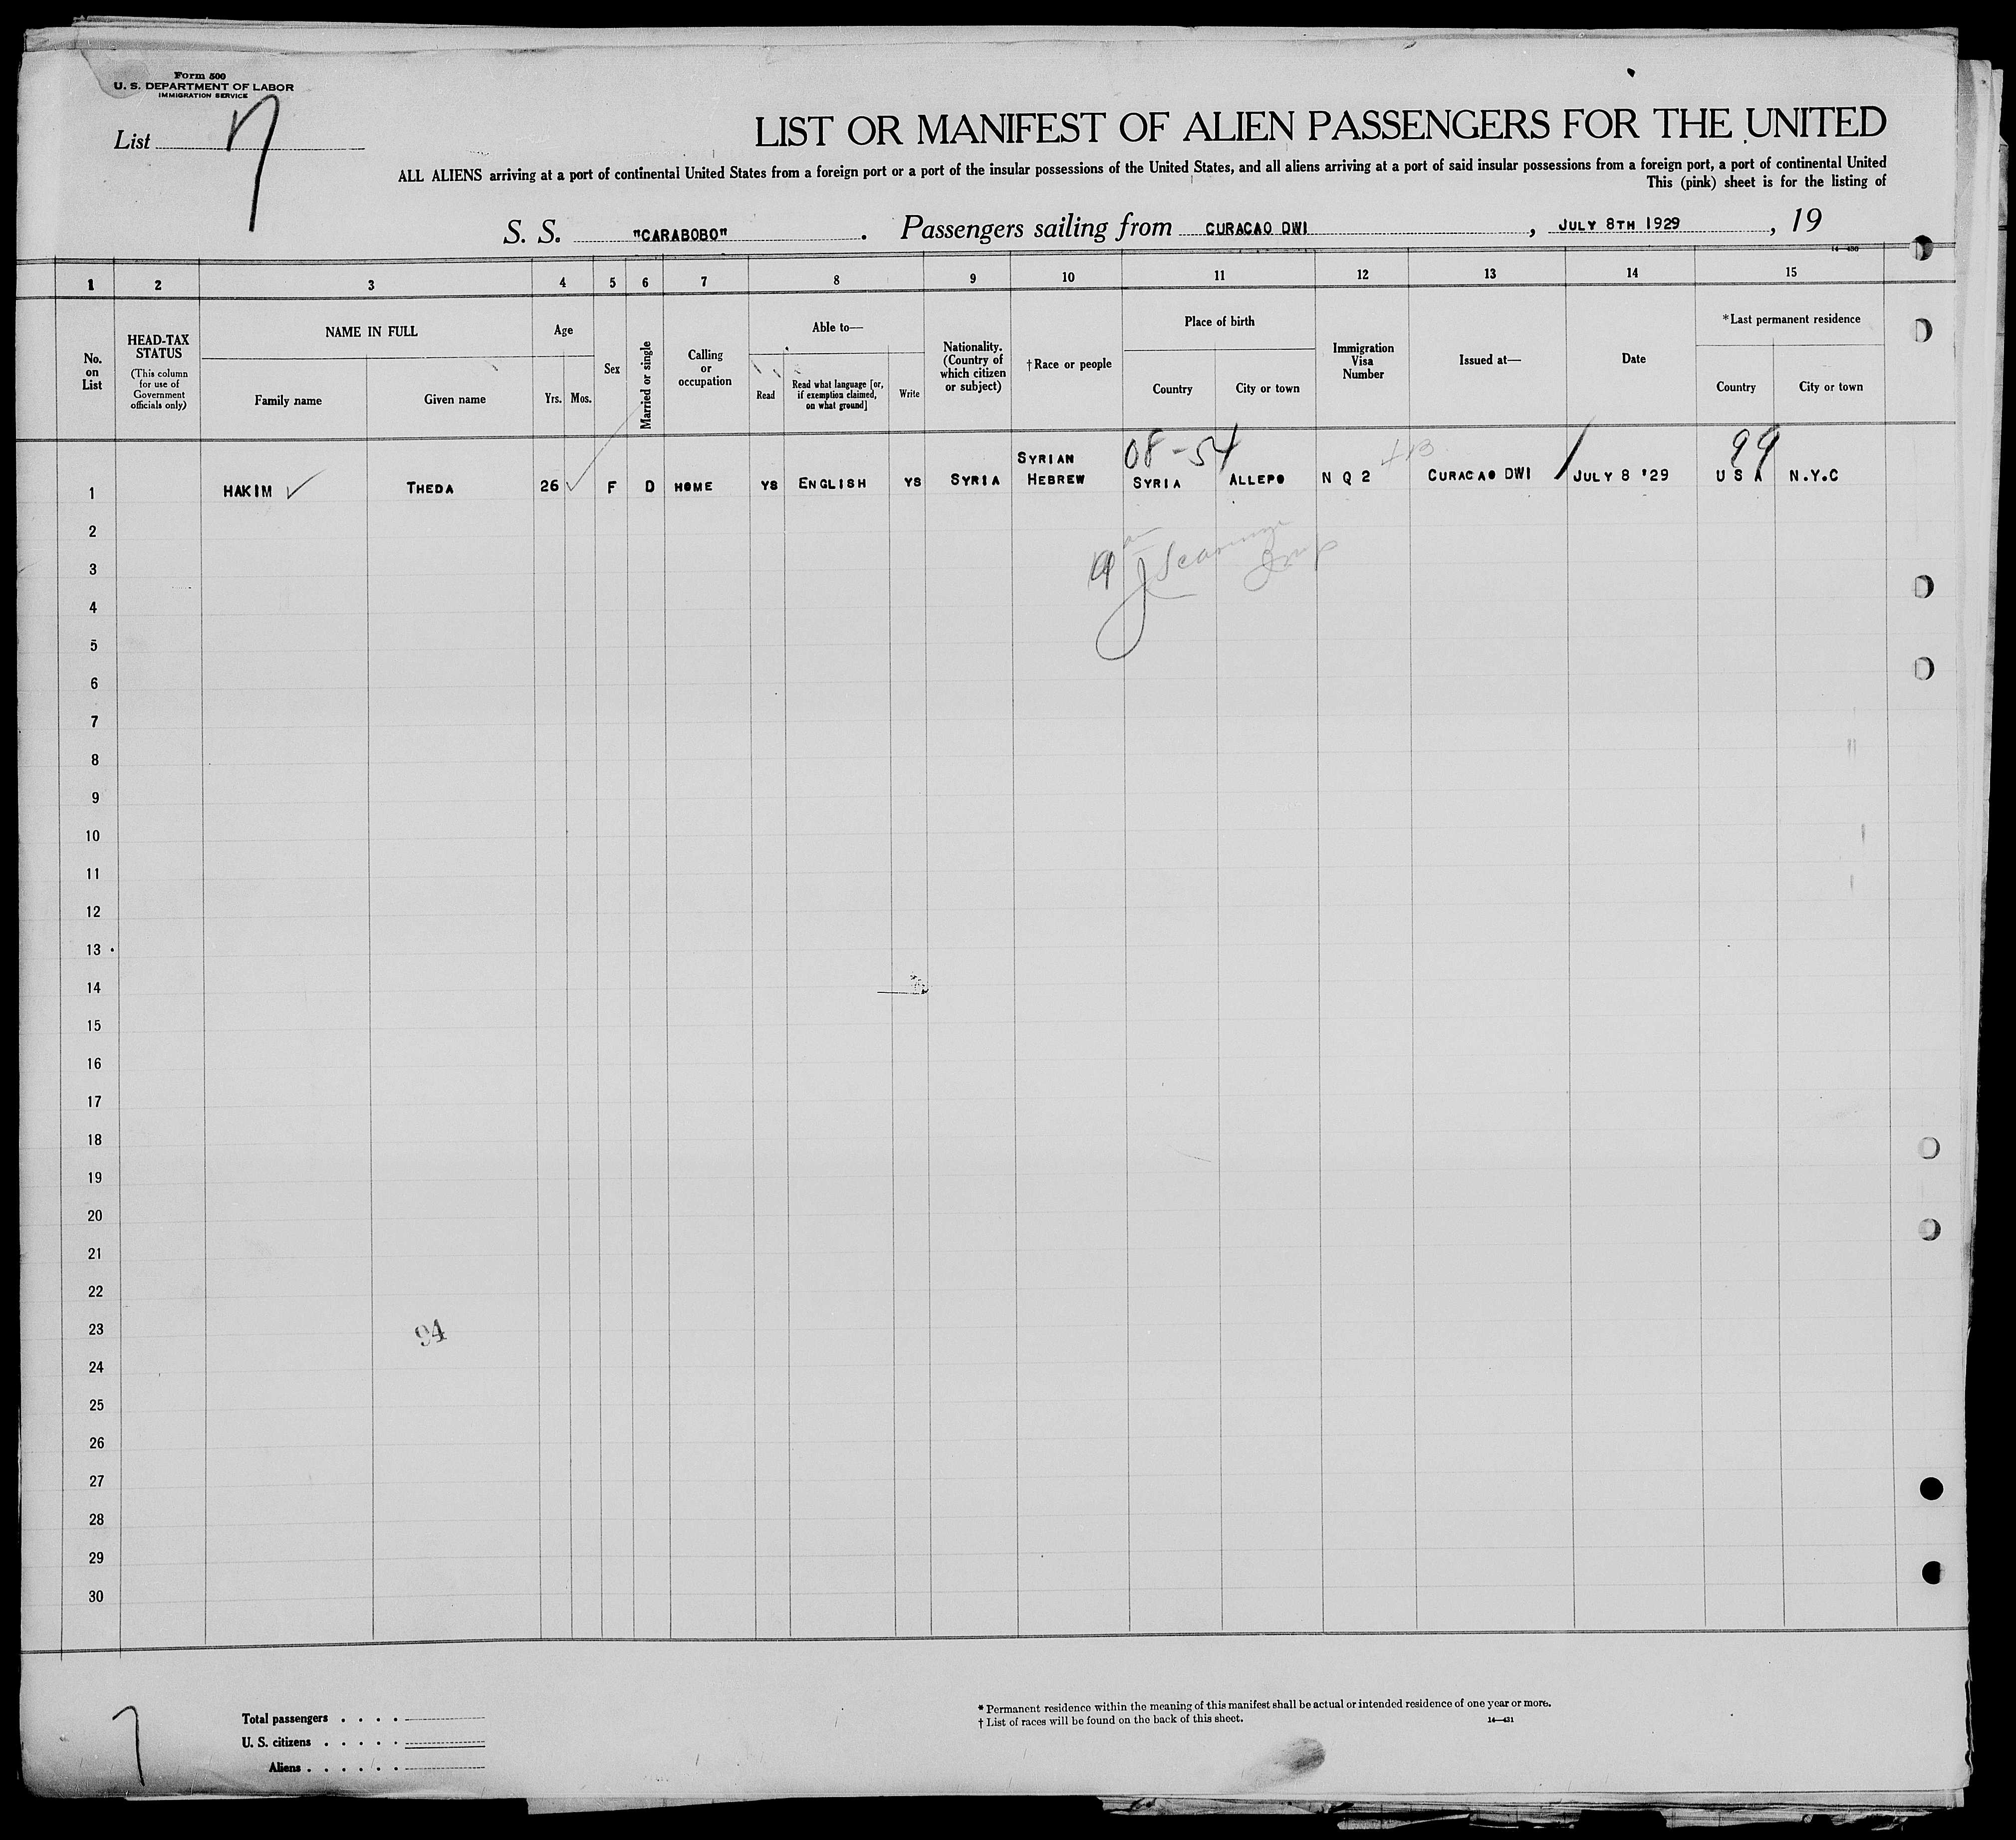 Form 500
U. S. DEPARTMENT OF LABOR
IMMIGRATION SERVICE
List 7
LIST OR MANIFEST OF ALIEN PASSENGERS FOR THE UNITED
ALL ALIENS arriving at a port of continental United States from a foreign port or a port of the insular possessions of the United States, and all aliens arriving at a port of said insular possessions from a foreign port, a port of continental United
This (pink) sheet is for the listing of
S. S. "CARABOBO". Passengers sailing from CURACAO DWI, JULY 8TH 1929, 19
14-430
1 2 3 4 5 6 7 8 9 10 11 12 13 14 15
No. on List
HEAD-TAX STATUS
(This column for use of Government officials only)
NAME IN FULL
Family name
Given name
Age
Yrs. Mos.
Sex
Married or single
Calling or occupation
Able to—
Read
Read what language [or, if exemption claimed, on what ground]
Write
Nationality. (Country of which citizen or subject)
†Race or people
Place of birth
Country
City or town
Immigration Visa Number
Issued at—
Date
*Last permanent residence
Country
City or town
08-54 99
1 HAKIM THEDA 26 F D HOME YS ENGLISH YS SYRIA SYRIAN HEBREW SYRIA ALLEPO N Q 2 CURACAO DWI JULY 8 '29 U S A N.Y.C
2
3
4
5
6
7
8
9
10
11
12
13
14
15
16
17
18
19
20
21
22
23
94
24
25
26
27
28
29
30
7
Total passengers . . . .
U. S. citizens . . . . .
Aliens . . . . . .
* Permanent residence within the meaning of this manifest shall be actual or intended residence of one year or more.
† List of races will be found on the back of this sheet.
14-431